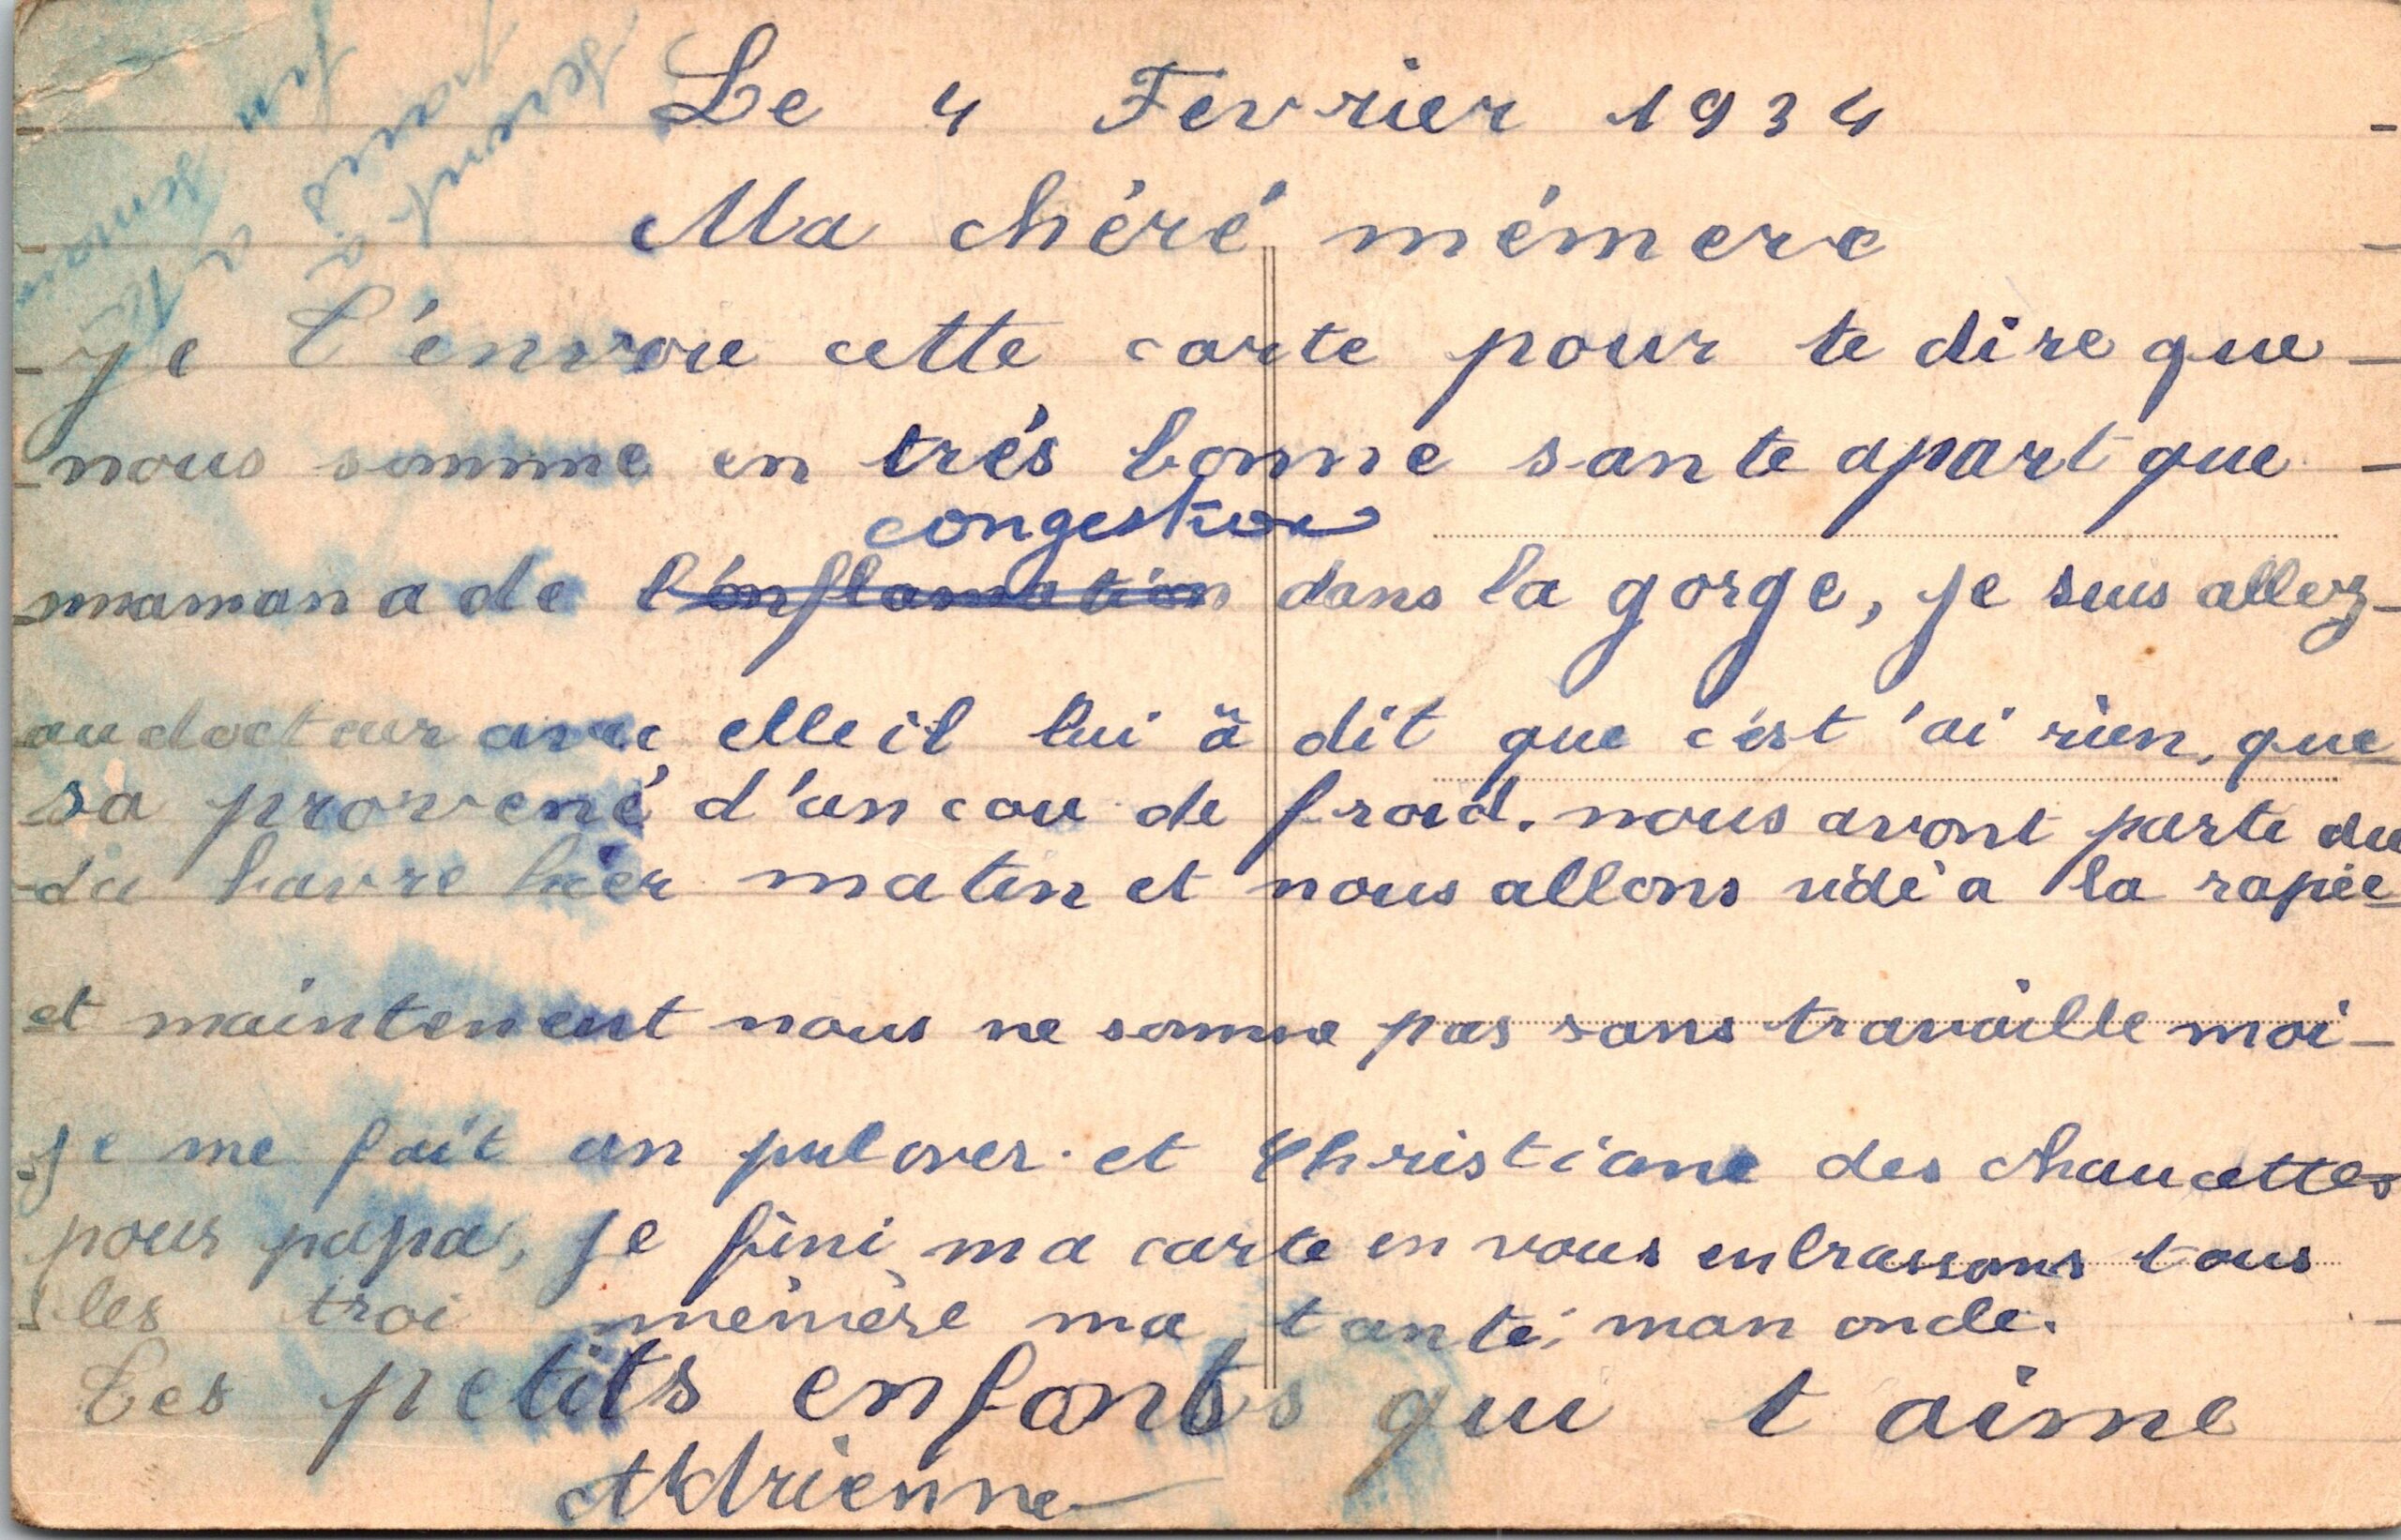 Le 4 Fevrier 1934
Ma chéré mémere
Je t'envoie cette carte pour te dire que
nous somme en trés bonne sante apart que
congestion
maman a de l'énflamation dans la gorge, je suis allez
au docteur avec elle il lui à dit que c'est 'ai rien, que
sa provené d'un cou de froid. nous avont parte du
du havre hier matin et nous allons vidé a la rapée
et maintenent nous ne somme pas sans travaille moi
je me fait un pulover. et Christiane des chaucettes
pour papa, je fini ma carte en vous enbrassans tous
les troi mémère ma tante, mon oncle.
Tes petits enfants qui t aime
Adrienne